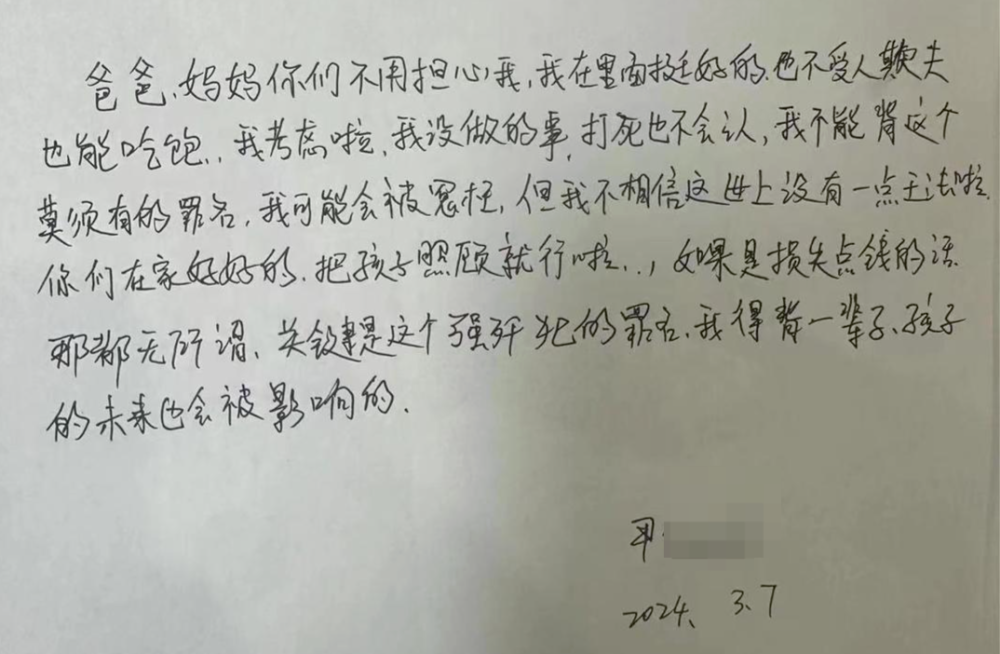 爸爸、妈妈你们不用担心我，我在里面挺好的.也不受人欺夫
也能吃饱..我考虑啦、我没做的事,打死也不会认,我不能背这个
莫须有的罪名,我可能会被冤枉,但我不相信这世上没有一点王法啦.
你们在家好好的.把孩子照顾就行啦..,如果是损失点钱的话.
那都无所谓、关键是这个强奸犯的罪名.我得背一辈子、孩子
的未来也会被影响的.
2024、3.7